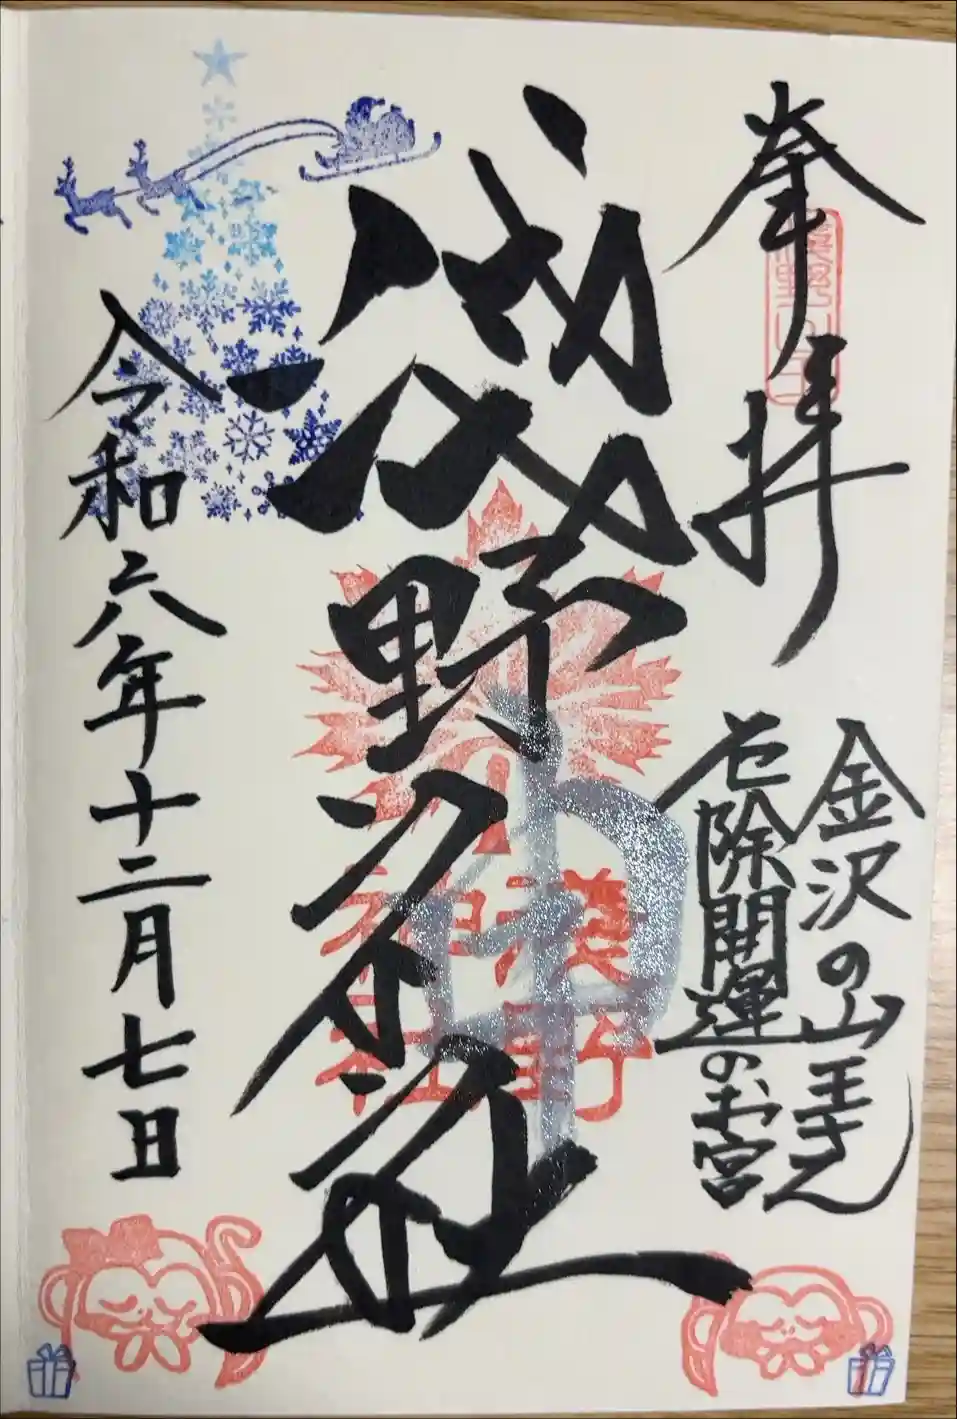 奉拝
金沢の山王さん
厄除開運のお宮
淺野神社
申
淺野
神社
令和六年十二月七日